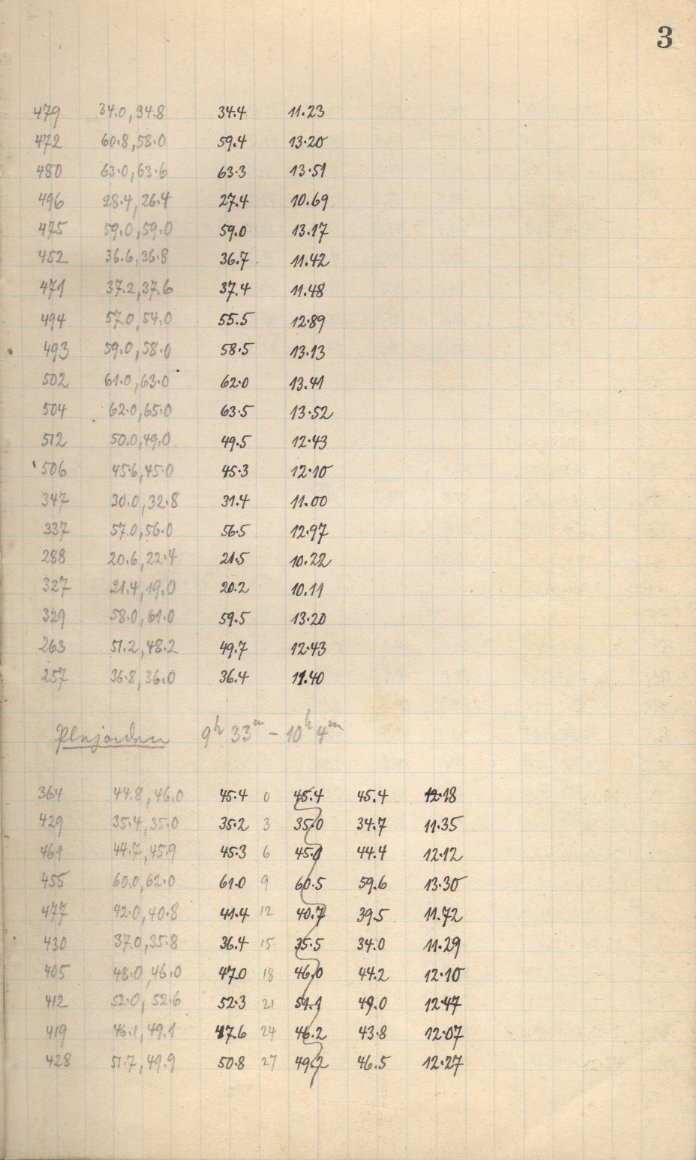 3
479 34.0, 34.8 34.4 11.23
472 60.8, 58.0 59.4 13.20
480 63.0, 63.6 63.3 13.51
496 28.4, 26.4 27.4 10.69
475 59.0, 59.0 59.0 13.17
452 36.6, 36.8 36.7 11.42
471 37.2, 37.6 37.4 11.48
494 57.0, 54.0 55.5 12.89
493 59.0, 58.0 58.5 13.13
502 61.0, 63.0 62.0 13.41
504 62.0, 65.0 63.5 13.52
512 50.0, 49.0 49.5 12.43
506 45.6, 45.0 45.3 12.10
347 30.0, 32.8 31.4 11.00
337 57.0, 56.0 56.5 12.97
288 20.6, 22.4 21.5 10.22
327 21.4, 19.0 20.2 10.11
329 58.0, 61.0 59.5 13.20
263 51.2, 48.2 49.7 12.43
257 36.8, 36.0 36.4 11.40
Plejaden 9h 33m – 10h 4m
364 44.8, 46.0 45.4 0 45.4 45.4 12.18
429 35.4, 35.0 35.2 3 35.0 34.7 11.35
461 44.7, 45.9 45.3 6 44.4 12.12
455 60.0, 62.0 61.0 9 60.5 59.6 13.30
477 42.0, 40.8 41.4 12 40.7 39.5 11.72
430 37.0, 35.8 36.4 15 35.5 34.0 11.29
405 48.0, 46.0 47.0 18 46.0 44.2 12.10
412 52.0, 52.6 52.3 21 51.1 49.0 12.47
419 46.1, 49.1 47.6 24 46.2 43.8 12.07
428 51.7, 49.9 50.8 27 49.2 46.5 12.27